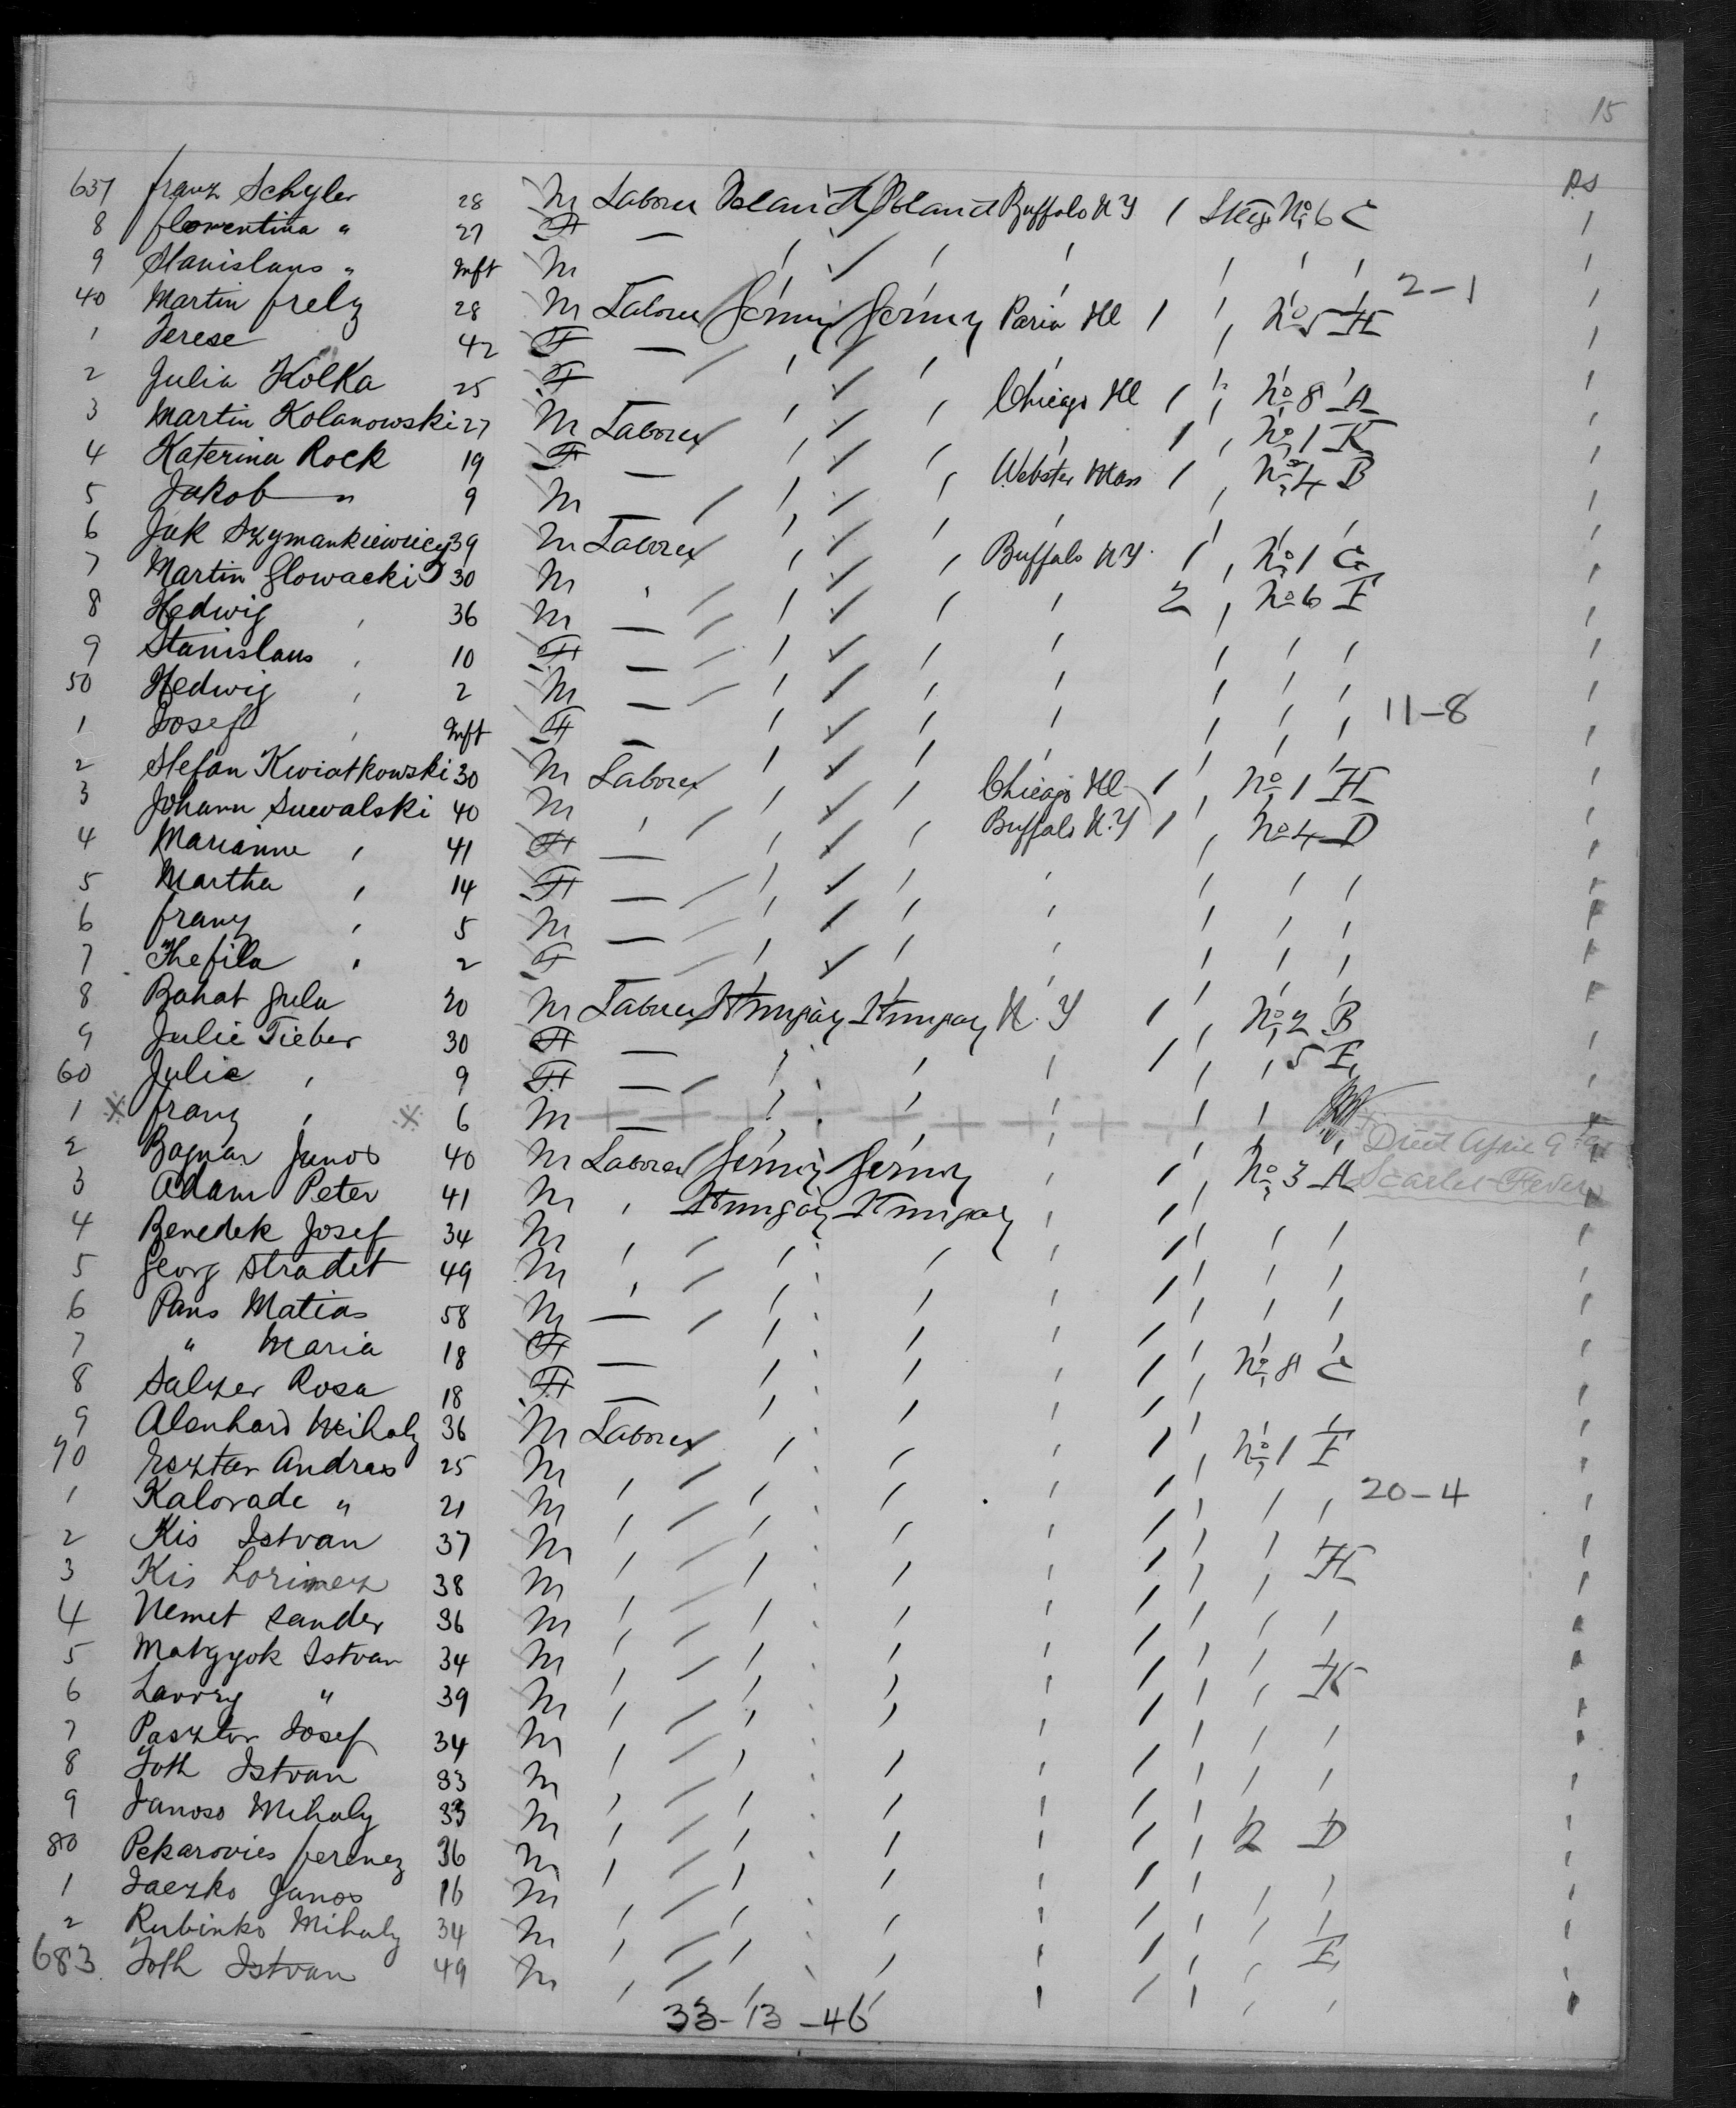 15
637 franz Schyler 28 M Laborer Poland Poland Buffalo N Y 1 Stege No 6 C
8 florentina " 27 F —
9 Stanislaus " Inft M
40 Martin frely 28 M Laborer Germny Germny Paria Ill 1 No 5 H 2-1
1 Terese 42 F —
2 Julia Kolka 25 F Chicago Ill 1 No 8 A
3 Martin Kolanowski 27 M Laborer 1 No 1 K
4 Katerina Rock 19 F — Webster Mass 1 No 4 B
5 Jakob " 9 M —
6 Jak Szymankiewicz 39 M Laborer Buffalo N Y 1 No 1 C
7 Martin Glowacki 30 M 2 No 6 E
8 Hedwig 36 M —
9 Stanislaus 10 F —
50 Hedwig 2 M —
1 Josef Inft F — 11-8
2 Stefan Kwiatkowski 30 M Laborer Chicago Ill 1 No 1 H
3 Johann Suwalski 40 M Buffalo N.Y 1 No 4 D
4 Marianne 41 F —
5 Martha 14 F —
6 franz 5 M —
7 Thefila 2 F
8 Banat Gula 20 M Laborer Hungary Hungary N. Y 1 No 2 B
9 Julie Tieber 30 F — 1 5 E
60 Julie 9 F —
1 franz 6 M — Died April 9th
2 Bagnar Janos 40 M Laborer Germny Germny 1 No 3 A Scarlet Fever
3 Adam Peter 41 M Hungary Hungary 1
4 Benedek Josef 34 M 1
5 Georg Stradet 49 M 1
6 Pans Matias 58 M — 1
7 " Maria 18 F — 1 No 8 C
8 Salzer Rosa 18 F — 1
9 Alenhard Mihaly 36 M Laborer 1 No 1 E
70 Esztar Andras 25 M 1
1 Kalorade " 21 M 1 20-4
2 Kis Istvan 37 M 1 H
3 Kis Lorinez 38 M 1
4 Nemet Sander 36 M 1
5 Matgyok Istvan 34 M 1 K
6 Lavrzy " 39 M 1
7 Pasztor Josef 34 M 1
8 Toth Istvan 33 M 1
9 Janoso Mihaly 33 M 1 2 D
80 Pekarovies ferencz 36 M 1
1 Jaczko Janos 16 M 1
2 Rubinko Mihaly 34 M 1 E
683 Toth Istvan 49 M 1
33-13-46